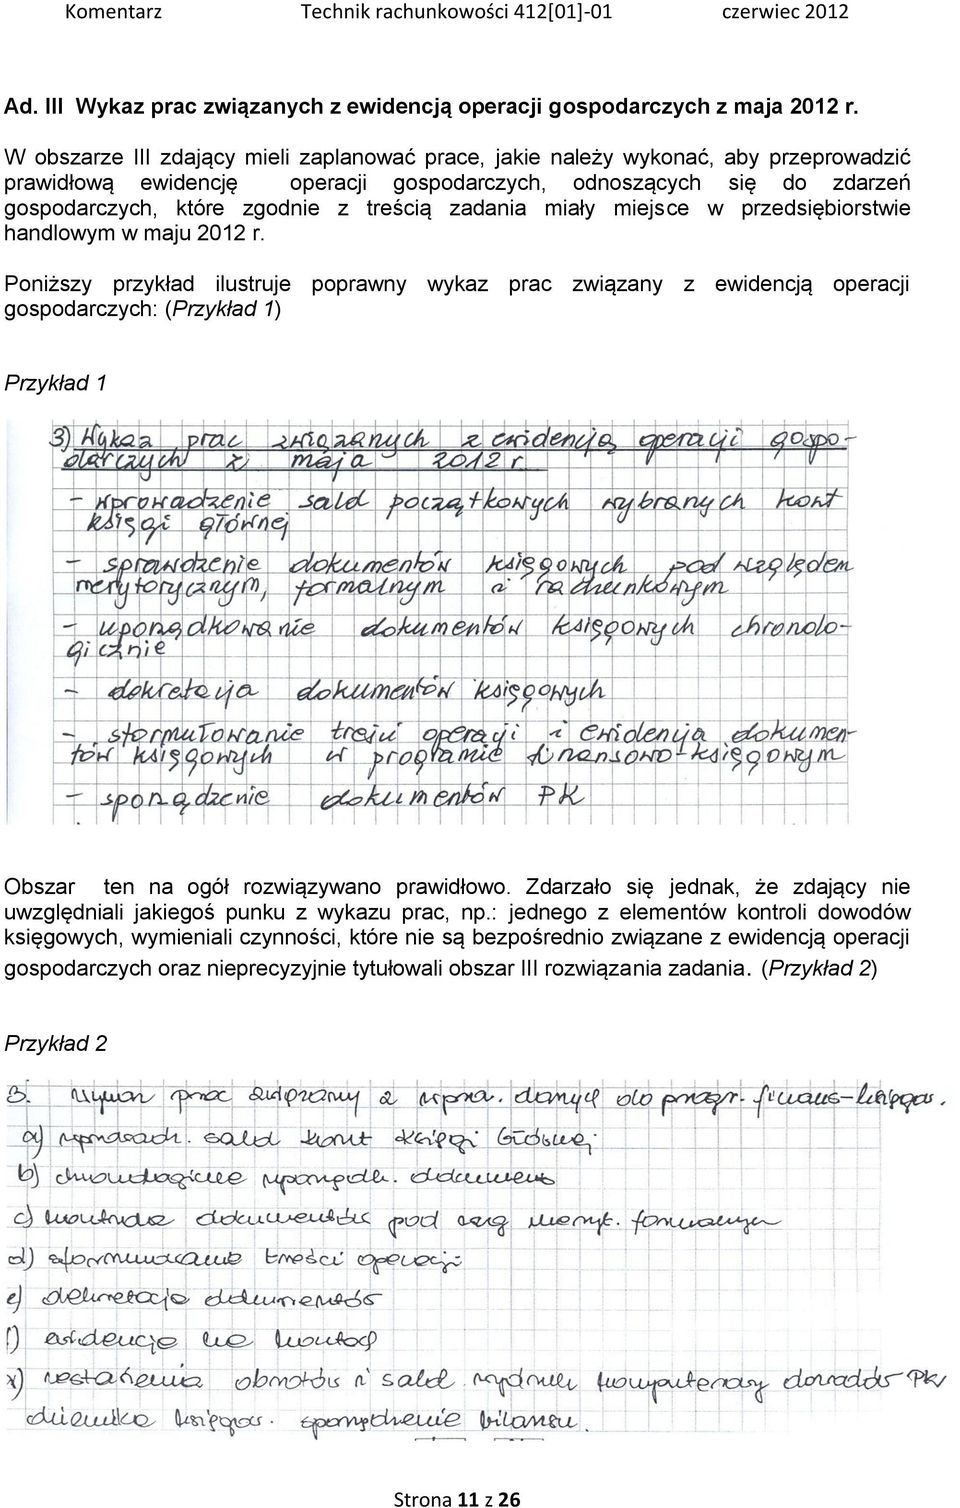 Komentarz Technik rachunkowości 412[01]-01 czerwiec 2012
Ad. III Wykaz prac związanych z ewidencją operacji gospodarczych z maja 2012 r.
W obszarze III zdający mieli zaplanować prace, jakie należy wykonać, aby przeprowadzić
prawidłową ewidencję operacji gospodarczych, odnoszących się do zdarzeń
gospodarczych, które zgodnie z treścią zadania miały miejsce w przedsiębiorstwie
handlowym w maju 2012 r.
Poniższy przykład ilustruje poprawny wykaz prac związany z ewidencją operacji
gospodarczych: (Przykład 1)
Przykład 1
3) Wykaz prac związanych z ewidencją operacji gospo-
darczych z maja 2012 r.
- wprowadzenie sald początkowych wybranych kont
księgi głównej
- sprawdzenie dokumentów księgowych pod względem
merytorycznym, formalnym i rachunkowym
- uporządkowanie dokumentów księgowych chronolo-
gicznie
- dekretacja dokumentów księgowych
- sformułowanie treści operacji i ewidencja dokumen-
tów księgowych w programie finansowo-księgowym
- sporządzenie dokumentów PK
Obszar ten na ogół rozwiązywano prawidłowo. Zdarzało się jednak, że zdający nie
uwzględniali jakiegoś punku z wykazu prac, np.: jednego z elementów kontroli dowodów
księgowych, wymieniali czynności, które nie są bezpośrednio związane z ewidencją operacji
gospodarczych oraz nieprecyzyjnie tytułowali obszar III rozwiązania zadania. (Przykład 2)
Przykład 2
3. prac związany z wprow. danych do progr. finans-księgow.
a) wprowadz. sald kont Księgi Głównej
b) chronologiczne uporządk. dokument
c) kontrola dokumentów pod wzg meryt. formalnym
d) sformułowanie treści operacji
e) dekretacja dokumentów
f) ewidencja na kontach
zestawienia obrotów i sald wydruk komputerowy dowodów PK,
dziennika księgow. sporządzenie bilansu.
Strona 11 z 26